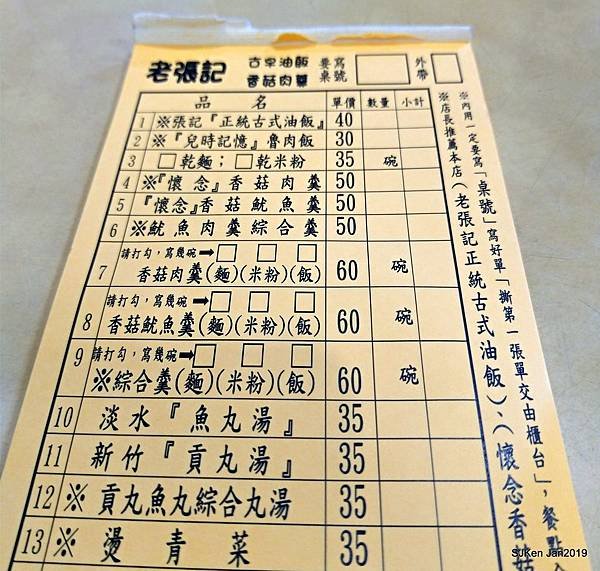 老張記 古早油飯 要寫 外
香菇肉羹 桌號 帶
品 名 單價 數量 小計
1 ※張記『正統古式油飯』 40
2 ※『兒時記憶』魯肉飯 30
3 □乾麵；□乾米粉 35 碗
4 ※『懷念』香菇肉羹 50
5 『懷念』香菇魷魚羹 50
6 ※魷魚肉羹綜合羹 50
請打勾，寫幾碗➡□ □ □
7 香菇肉羹(麵)(米粉)(飯) 60 碗
請打勾，寫幾碗➡□ □ □
8 香菇魷魚羹(麵)(米粉)(飯) 60 碗
請打勾，寫幾碗➡□ □ □
9 ※綜合羹(麵)(米粉)(飯) 60 碗
10 淡水『魚丸湯』 35
11 新竹『貢丸湯』 35
12 ※ 貢丸魚丸綜合丸湯 35
13 ※ 燙青菜 35
※內用一定要寫「桌號」寫好單「撕第一張單交由櫃台」，餐點
※店長推薦本店(老張記正統古式油飯)、(懷念香菇
SJKen Jan2019